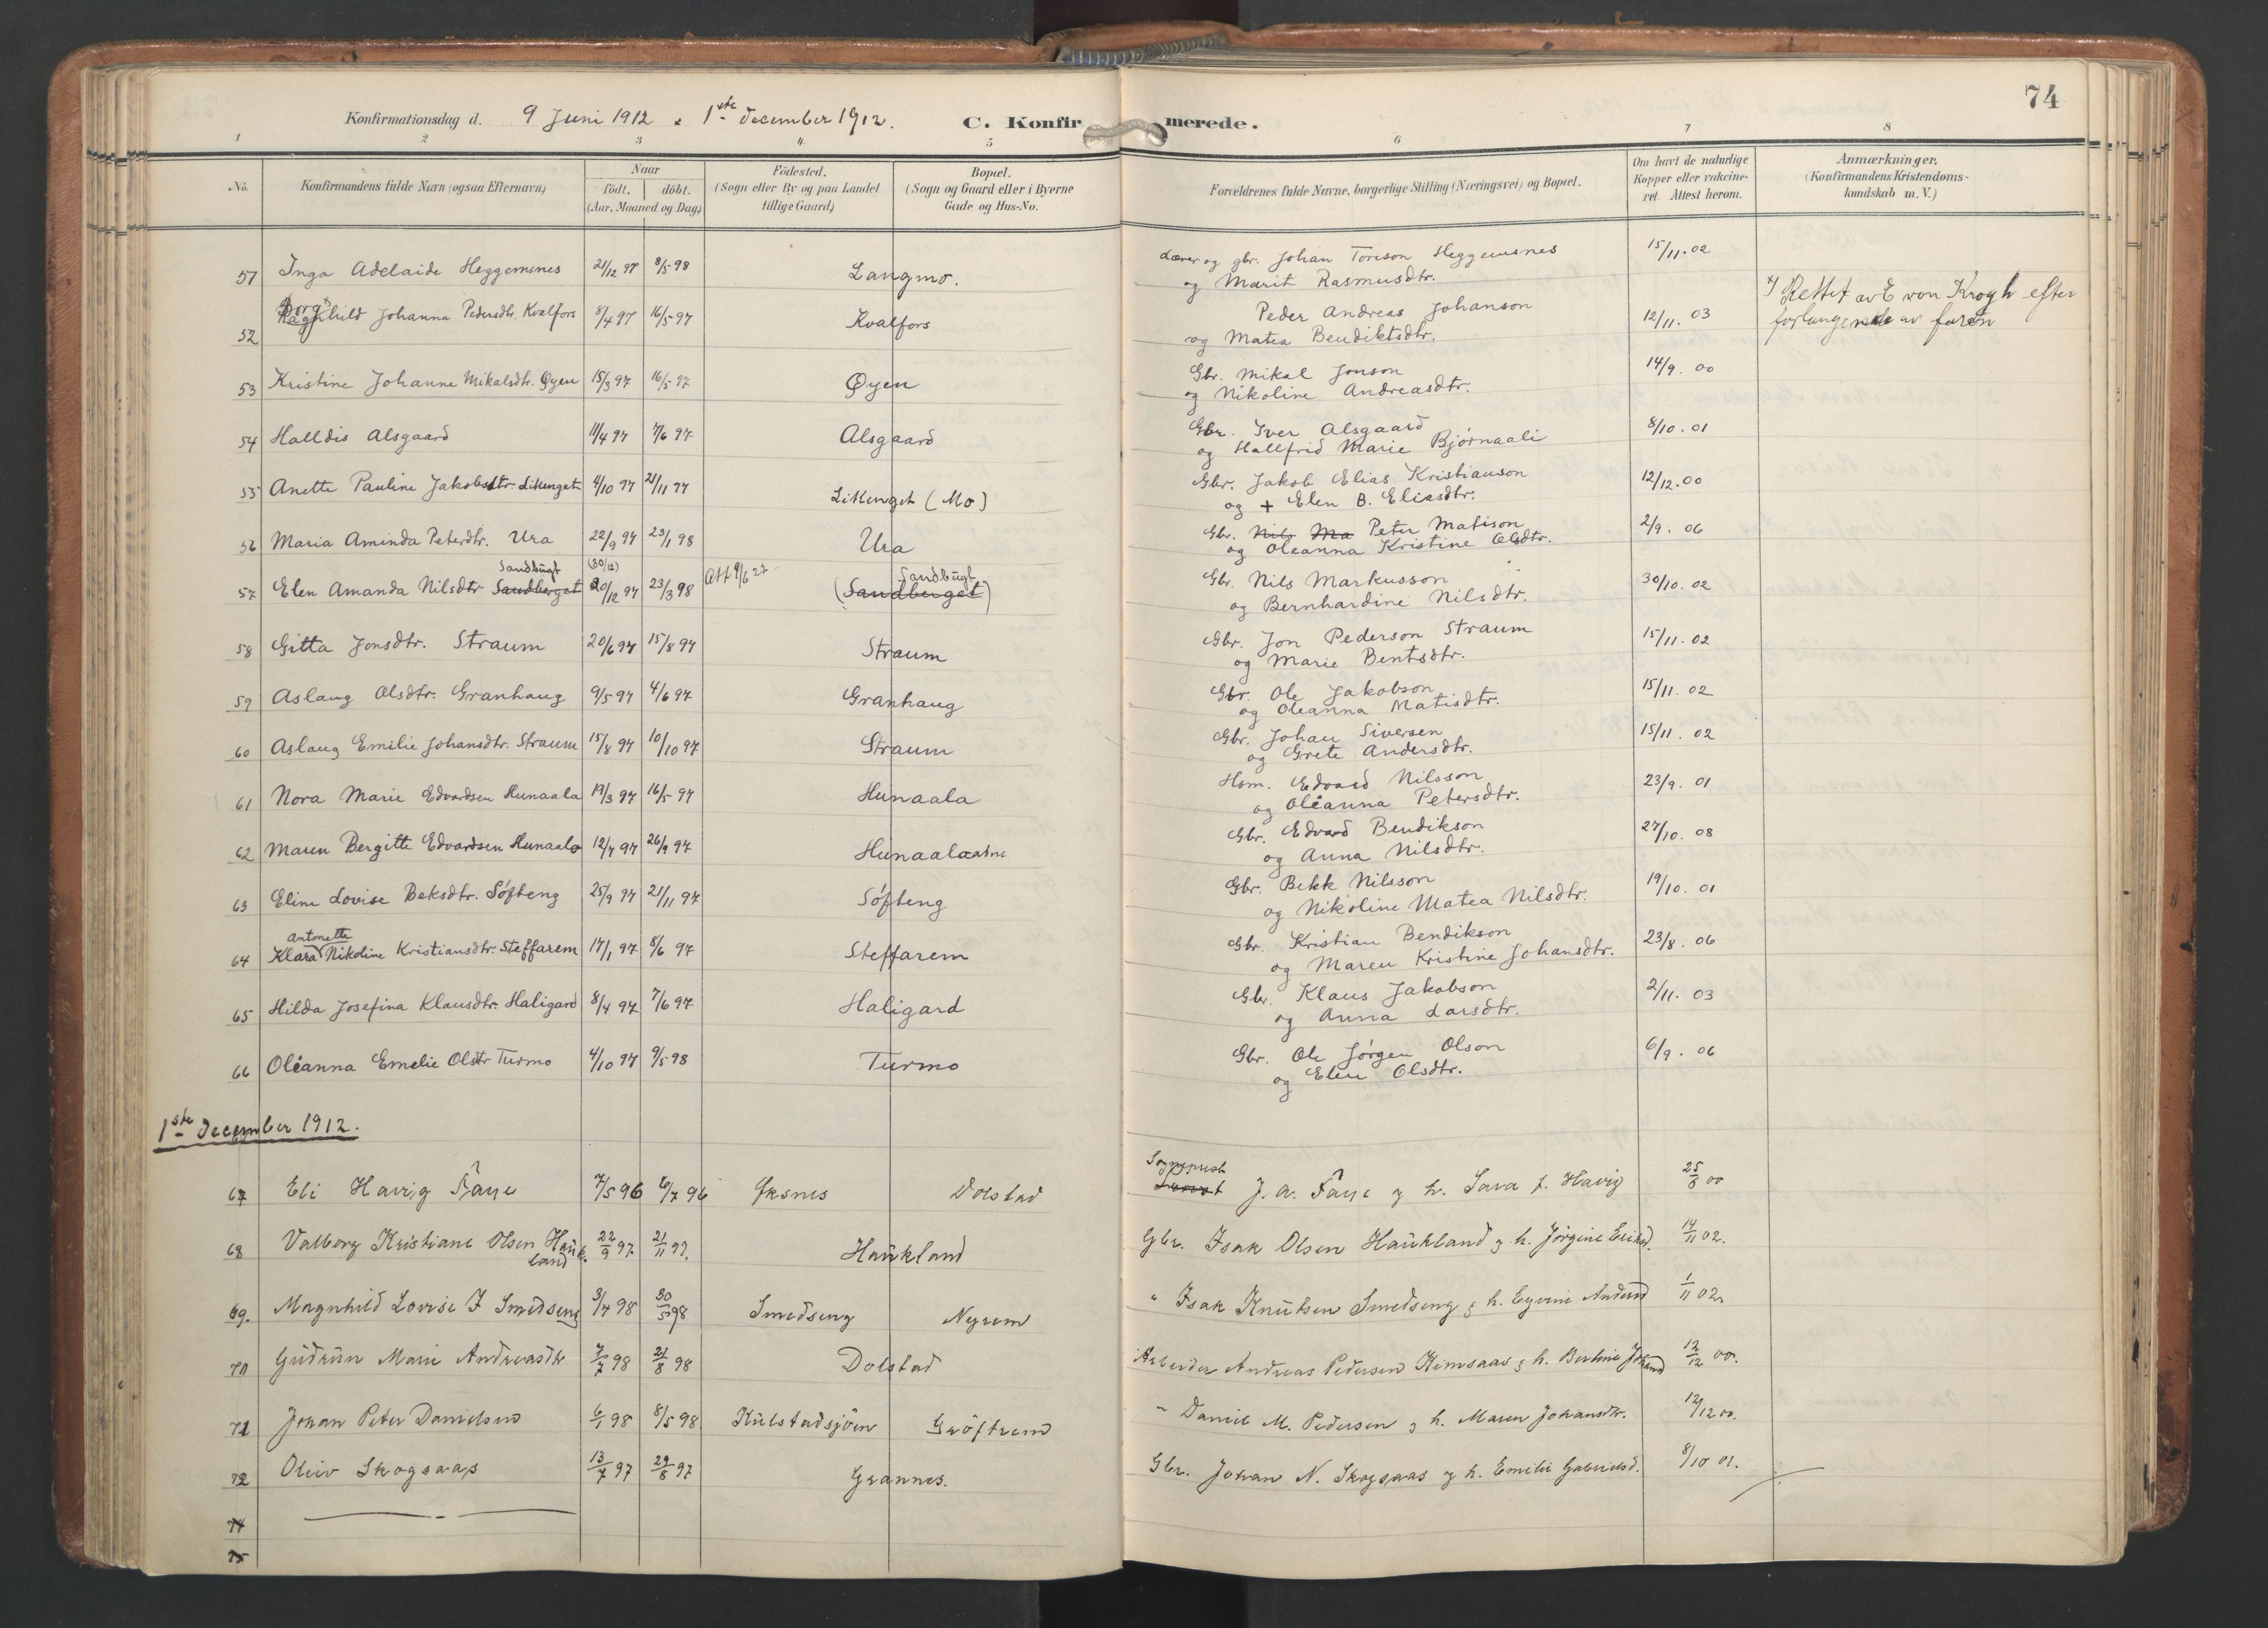 74
Konfirmationsdag d. 9 Juni 1912 & 1ste December 1912. C. Konfirmerede.
1 2 3 4 5 6 7 8
No. Konfirmandens fulde Navn (ogsaa Efternavn) Naar født. døbt. (Aar, Maaned og Dag) Födested. (Sogn eller By og paa Landet tillige Gaard) Bopæl. (Sogn og Gaard eller i Byerne Gade og Hus-No. Forældrenes fulde Navne, borgerlige Stilling (Næringsvei) og Bopæl. Om havt de naturlige Kopper eller vakcineret. Attest herom. Anmærkninger. (Konfirmandens Kristendomskundskab m. V.)
51 Inga Adelaide Heggemsnes 21/12 97 8/5 98 Langmo. Lærer og gbr. Johan Toreson Heggemsnes 15/11. 02
og Marit Rasmusdtr.
52 Borghild Johanna Pedersdtr. Kvalfors 8/4 97 16/5 97 Kvalfors Peder Andreas Johanson 12/11. 03 x) Rettet av E von Krogh efter
og Matea Bendiktsdtr. forlangende av faren
53 Kristine Johanne Mikalsdtr. Øyen 15/3 97 16/5 97 Øyen Gbr. Mikal Jonson 14/9. 00
og Nikoline Andreasdtr.
54 Halldis Alsgaard 11/4 97 7/6 97 Alsgaard Gbr. Iver Alsgaard 8/10. 01
og Hallfrid Marie Bjørnaali
55 Anette Pauline Jakobsdtr. Litlenget 4/10 97 21/11 97 Litlenget (Mo) Gbr. Jakob Elias Kristianson 12/12. 00
og + Elen B. Eliasdtr.
56 Maria Aminda Petersdtr. Ura 22/9 97 23/1 98 Ura Gbr. Nils Ma Peter Matison 2/9. 06
og Oleanna Kristine Olsdtr.
Sandbugt (30/12) Att 9/6 27 Sandbugt
57 Elen Amanda Nilsdtr Sandberget 20/12 97 23/3 98 (Sandberget) Gbr. Nils Markusson 30/10. 02
og Bernhardine Nilsdtr.
58 Gitta Jonsdtr. Straum 20/6 97 15/8 97 Straum Gbr. Jon Pederson Straum 15/11. 02
og Marie Bentsdtr.
59 Aslaug Olsdtr. Granhaug 9/5 97 4/6 97 Granhaug Gbr. Ole Jakobson 15/11. 02
og Oleanna Matisdtr.
60 Aslaug Emilie Johansdtr. Straum 15/8 97 10/10 97 Straum Gbr. Johan Siversen 15/11. 02
og Grete Andersdtr.
61 Nora Marie Edvardsen Hunaala 19/3 97 16/5 97 Hunaala Hsm. Edvard Nilsson 23/9. 01
og Oleanna Petersdtr.
62 Maren Bergitte Edvardsen Hunaala 12/7 97 26/9 97 Hunaala Gbr. Edvard Bendikson 27/10. 08
og Anna Nilsdtr.
63 Eline Lovise Beksdtr. Søfteng 25/9 97 21/11 97 Søfteng Gbr. Bekk Nilsson 19/10. 01
og Nikoline Matea Nilsdtr.
Antonette
64 Klara Nikoline Kristiansdtr. Steffarem 17/1 97 8/6 97 Steffarem Gbr. Kristian Bendikson 23/8. 06
og Maren Kristine Johansdtr.
65 Hilda Josefina Klausdtr. Haligard 8/4 97 7/6 97 Haligard Gbr. Klaus Jakobson 2/11. 03
og Anna Larsdtr.
66 Oleanna Emelie Olsdtr Turmo 4/10 97 9/5 98 Turmo Gbr. Ole Jørgen Olson 6/9. 06
og Elen Olsdtr.
1ste December 1912.
67 Eli Havig Faye 7/5 96 6/7 96 Øksnes Dolstad Sogneprest J. A. Faye og h. Sara f. Havig 25/8 00
68 Valborg Kristiane Olsen Haukland 22/9 97 21/11 97. Haukland Gbr. Isak Olsen Haukland og h. Jörgine Eriksd. 14/11 02.
69. Magnhild Lovise I Smedseng 3/4 98 30/5 98 Smedseng Nyrem " Isak Knutsen Smedseng og h. Andersd 1/11 02.
70 Gudrun Marie Andreasdtr 7/7 98 21/8 98 Dolstad Arbeider Andreas Pedersen Kimsaas og h. Berthine Johansd 12/12 00.
71 Johan Peter Danielsen 6/1 98 8/5 98. Kulstadsjöen Gröftrem " Daniel M. Pedersen og h. Maren Johansdtr. 12/12 00.
72 Oluv Skogsaas 13/7 97 29/8 97 Grannes. Gbr. Johan N. Skogsaas og h. Emilie Gabrielsd. 8/10 01.
74
75